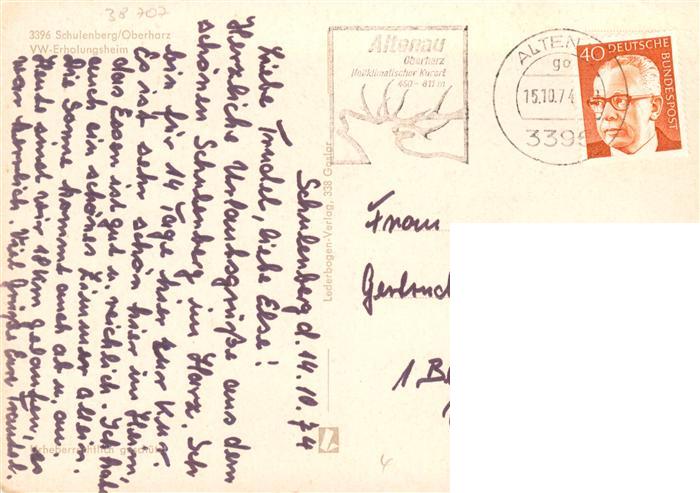 38 707
3396 Schulenberg/Oberharz
VW-Erholungsheim
Altenau
Oberharz
Heilklimatischer Kurort
450 - 811 m
ALTEN
go
15.10.74
339
40 DEUTSCHE
BUNDESPOST
Schulenberg d. 14.10.74
Liebe Trudel, liebe Else!
Herzliche Urlaubsgrüße aus dem
schönen Schulenberg im Harz. Ich
bin für 14 Tage hier zur Kur.
Es ist sehr schön hier im Heim
das Essen ist gut u. reichlich. Ich hab
auch ein schönes Zimmer allein.
Die Sonne kommt auch ab u. an.
Heute sind wir 18 km gelaufen, es
war herrlich. Viel Grüße Eure
Lederbogen-Verlag, 338 Goslar
Urheberrechtlich geschützt
Frau
Gertrud
1 Be
4